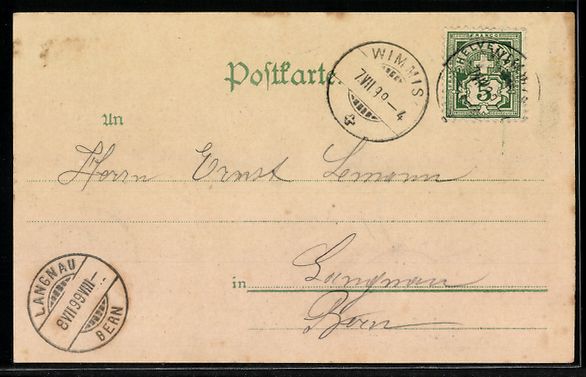 FRANCO
HELVETIA
5
WIMMIS
7.VII.99–4
Postkarte.
An
Herrn Ernst Lemann
in Langnau
Bern
LANGNAU
8.VII.99.VIII–
BERN